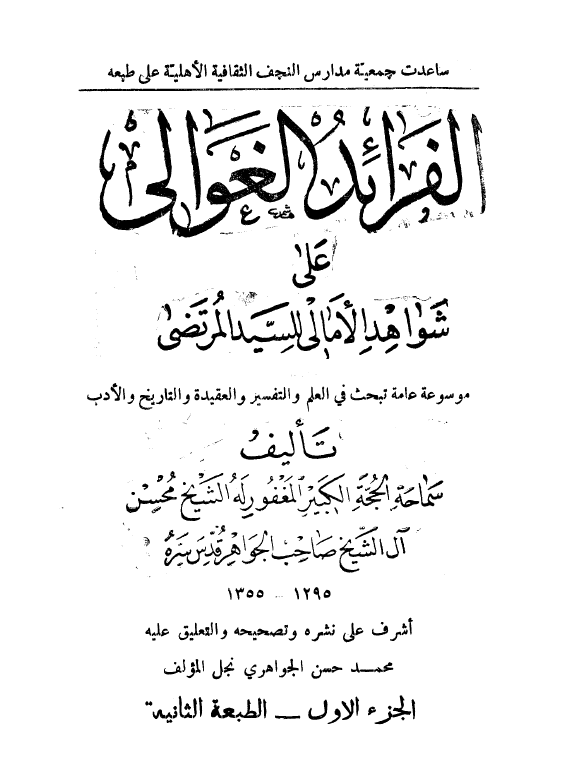 ساعدت جمعية مدارس النجف الثقافية الأهلية على طبعه
الفرائد الغوالي
على
شواهد الأمالي للسيد المرتضى
موسوعة عامة تبحث في العلم والتفسير والعقيدة والتاريخ والأدب
تأليف
سماحة الحجة الكبير المغفور له الشيخ محسن
آل الشيخ صاحب الجواهر قدس سره
١٢٩٥ - ١٣٥٥
أشرف على نشره وتصحيحه والتعليق عليه
محمد حسن الجواهري نجل المؤلف
الجزء الاول — الطبعة الثانية